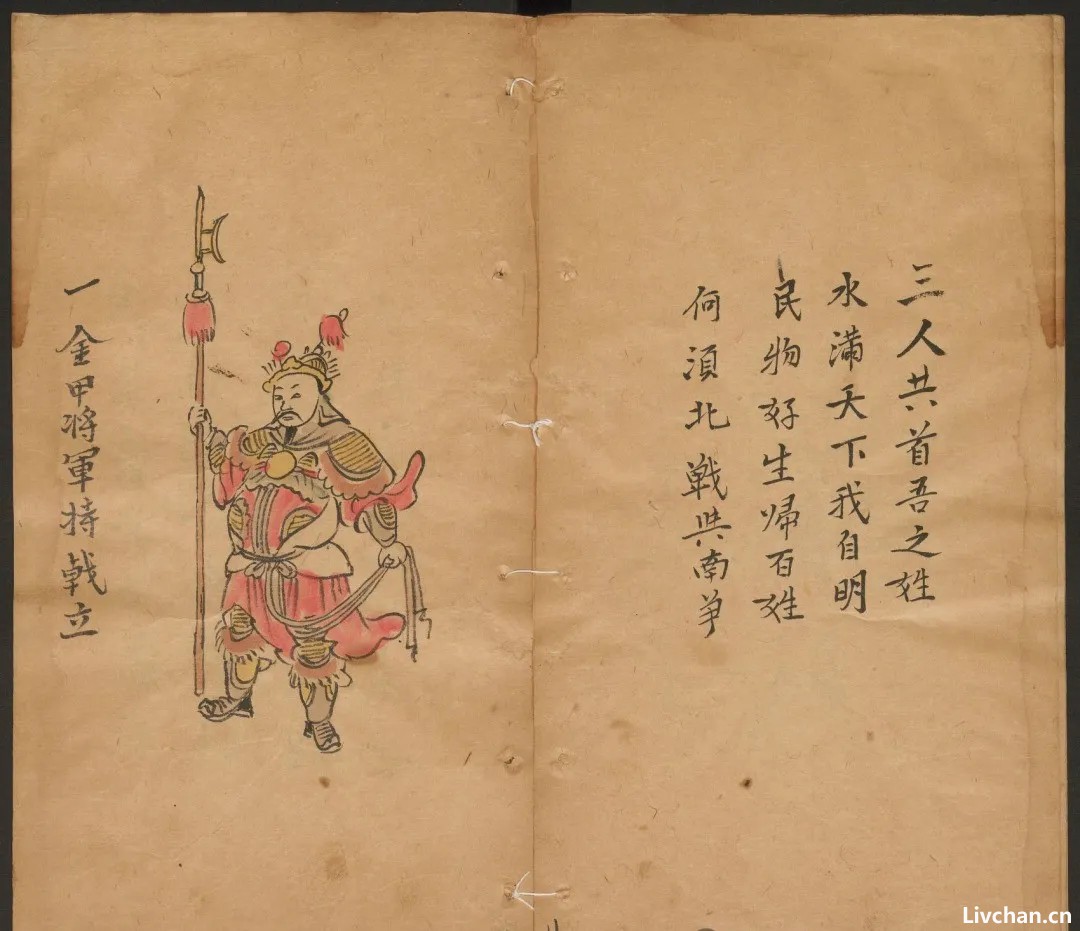 三人共首吾之姓
水滿天下我自明
民物好生歸百姓
何須北戰與南爭
一金甲将軍持戟立
Livchan.cn